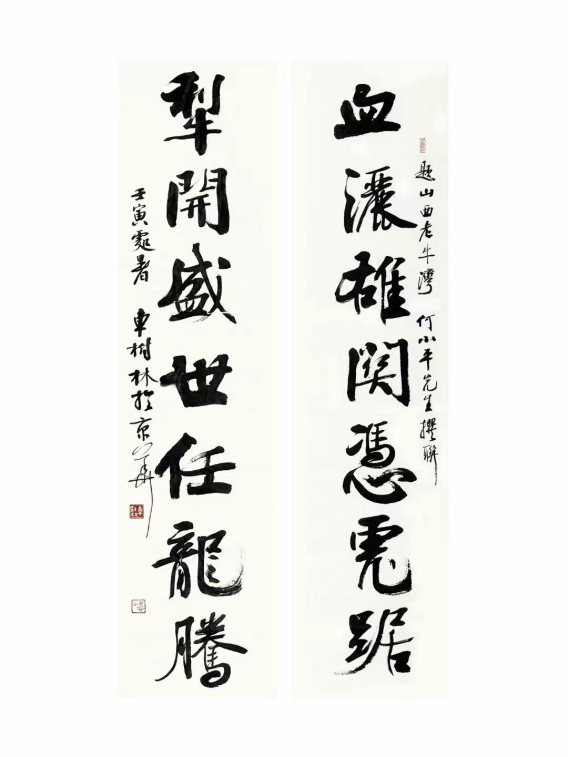 題山西老牛灣 何小平先生撰聯
血灑雄関憑虎踞
犁開盛世任龍騰
壬寅處暑 車樹林於京華